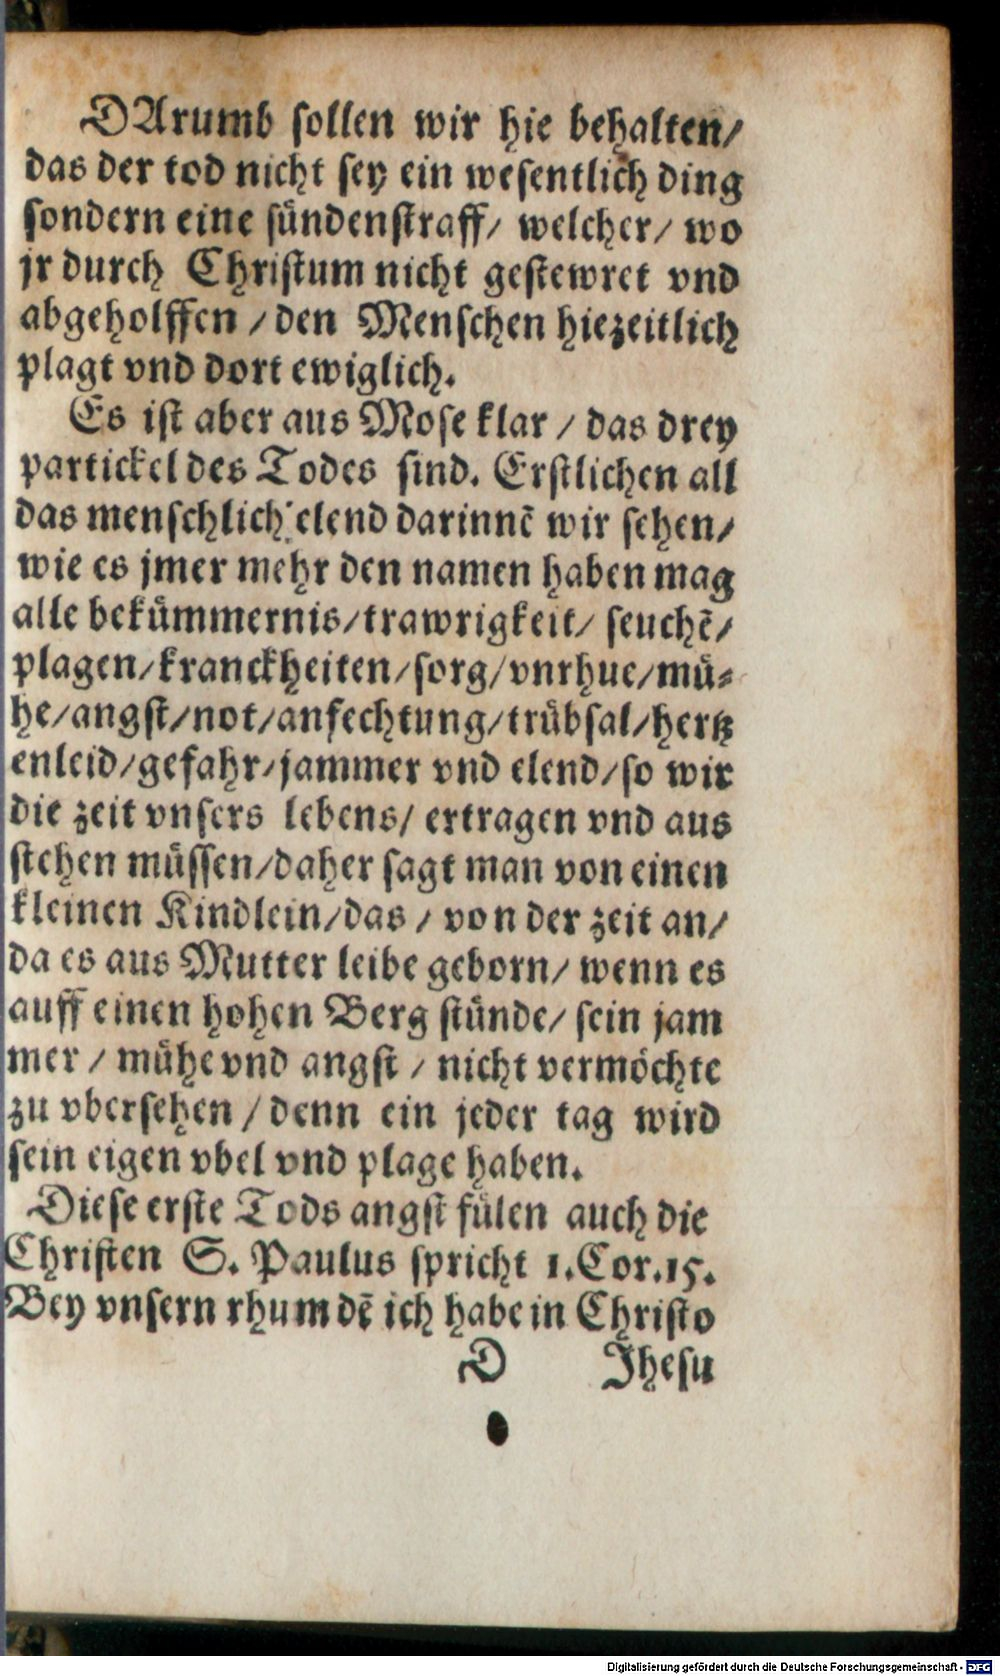 DArumb ſollen wir hie behalten/
das der tod nicht ſey ein weſentlich ding
ſondern eine ſündenſtraff/ welcher/ wo
jr durch Chriſtum nicht geſtewret vnd
abgeholffen /den Menſchen hiezeitlich
plagt vnd dort ewiglich.
Es iſt aber aus Moſe klar / das drey
partickel des Todes ſind. Erſtlichen all
das menſchlich elend darinnē wir ſehen/
wie es jmer mehr den namen haben mag
alle bekümmernis/trawrigkeit/ ſeuchē/
plagen/kranckheiten/ſorg/vnrhue/mü⸗
he/angſt/not/anfechtung/trübſal/hertz
enleid/gefahr/jammer vnd elend/ſo wir
die zeit vnſers lebens/ ertragen vnd aus
ſtehen müſſen/daher ſagt man von einen
kleinen Kindlein/das / von der zeit an/
da es aus Mutter leibe geborn/ wenn es
auff einen hohen Berg ſtünde/ ſein jam
mer / mühe vnd angſt / nicht vermöchte
zu vberſehen /denn ein jeder tag wird
ſein eigen vbel vnd plage haben.
Dieſe erſte Tods angſt fülen auch die
Chriſten S. Paulus ſpricht 1.Cor.15.
Bey vnſern rhum dē ich habe in Chriſto
D Jheſu
Digitalisierung gefördert durch die Deutsche Forschungsgemeinschaft - DFG